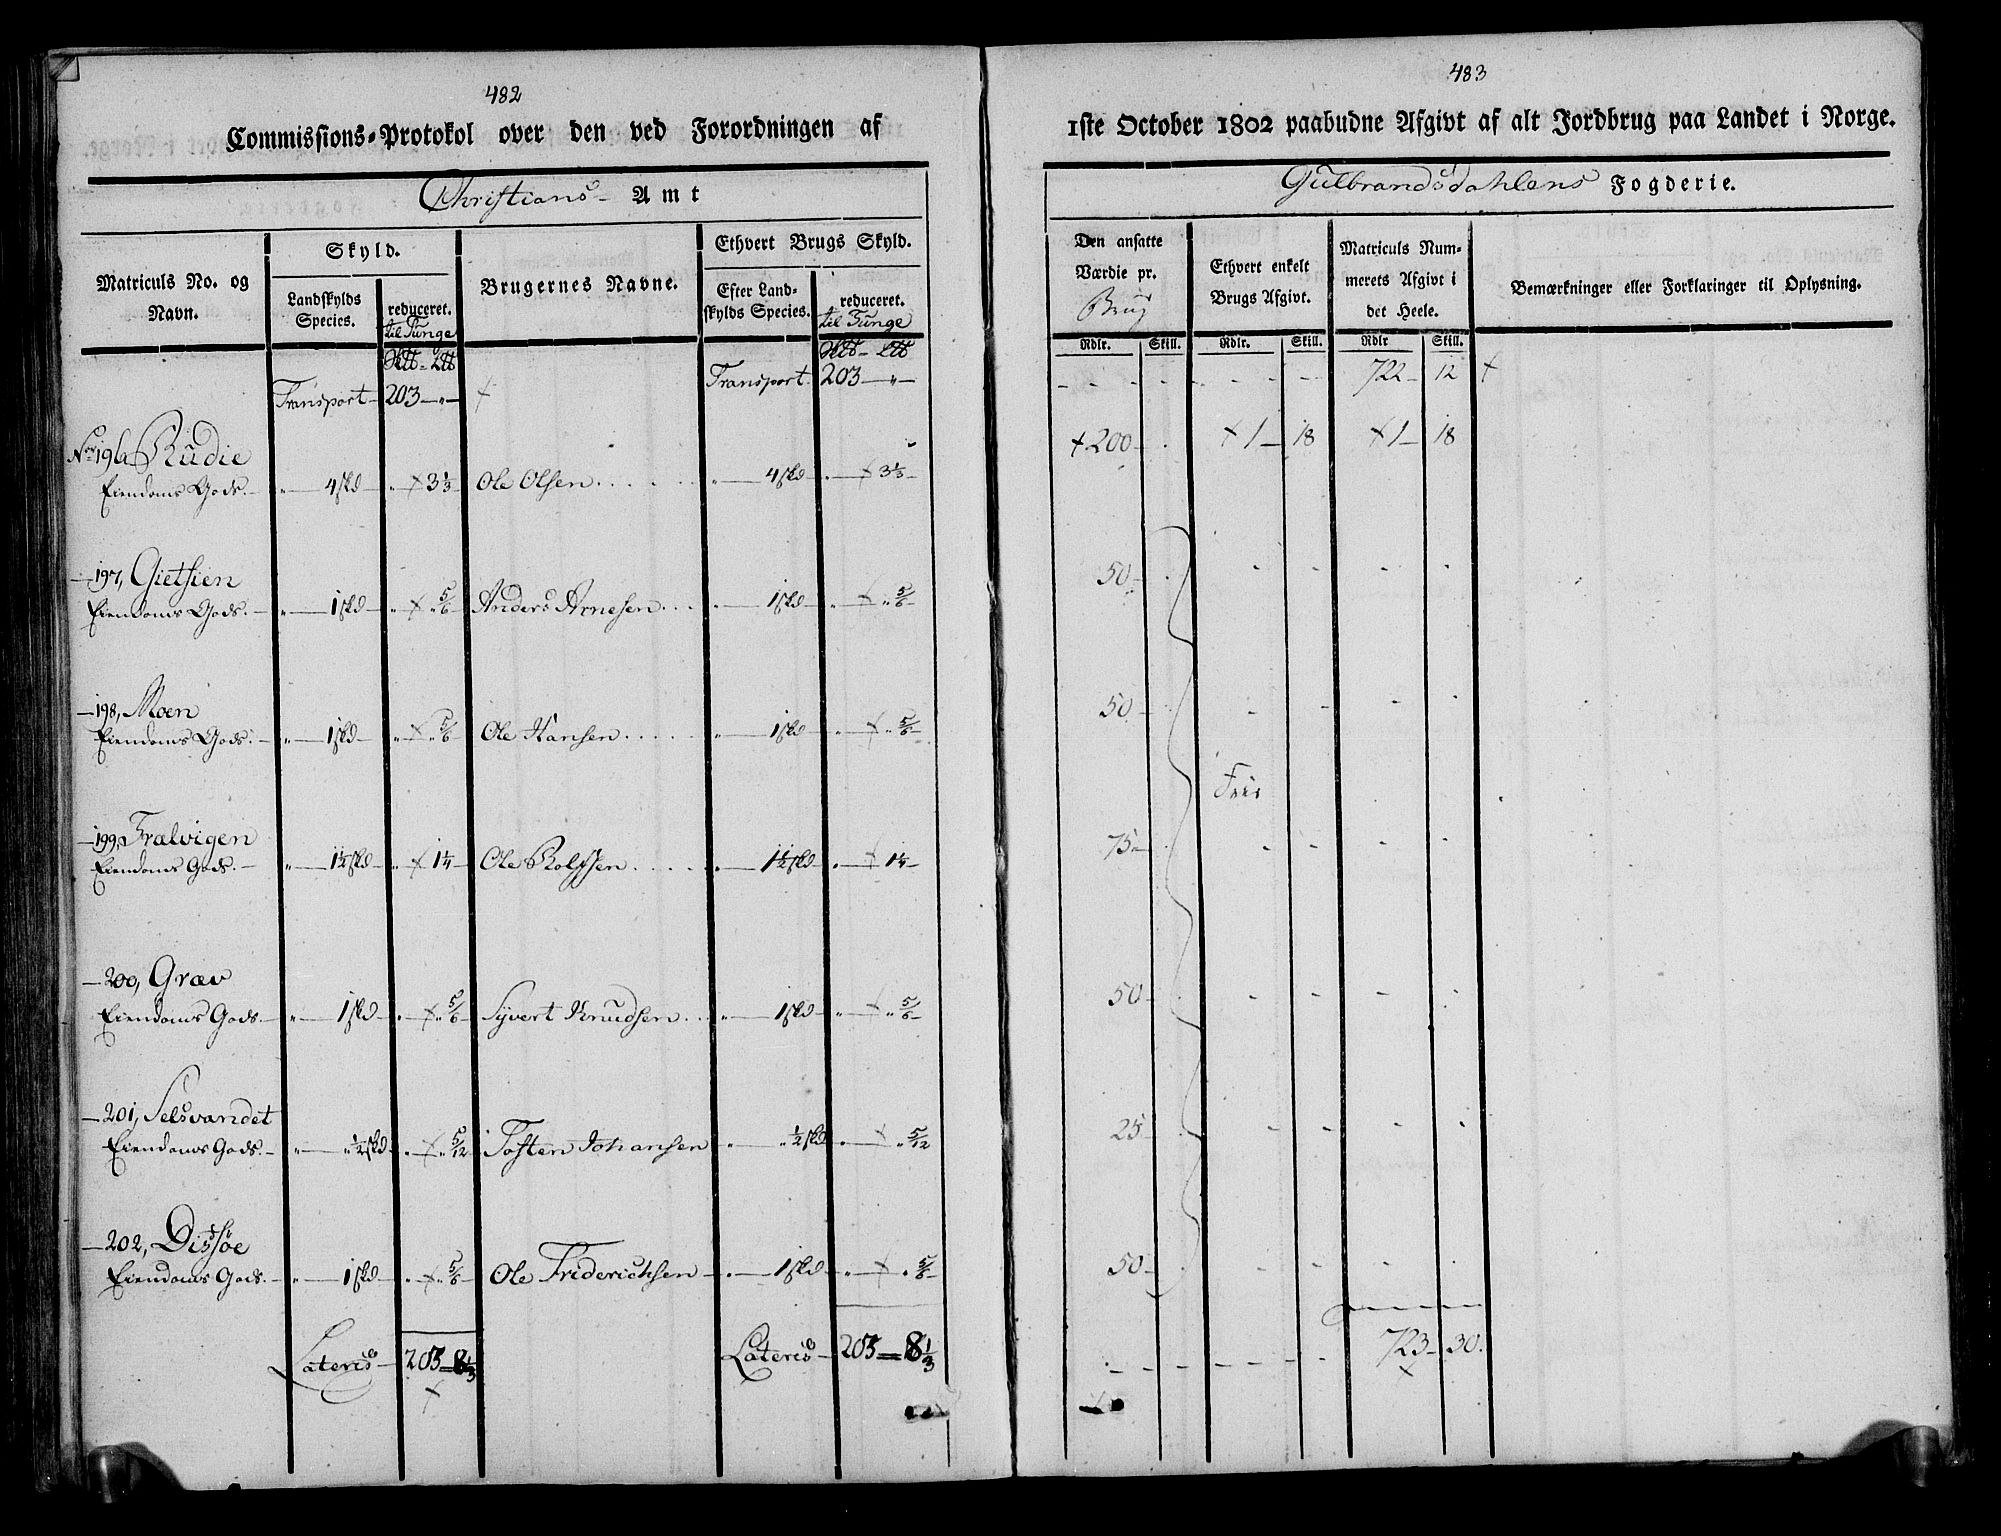 482
Commissions-Protokol over den ved Forordningen af
Christians- Amt
Matriculs No. og Navn.
Skyld.
Landskylds Species.
reduceret. til Tunge
Brugernes Navne.
Ethvert Brugs Skyld.
Efter Landskylds Species.
reduceret. til Tunge
Transport- 203-"- Transport 203-"-
No 196, Rudie
Eiendoms Gods. - " - 4 skd - " - 3 1/3 Ole Olsen . . . . . . " - 4 skd - " - 3 1/3 -
- 197, Gietsien
Eiendoms Gods. - " - 1 skd - " " 5/6 Anders Arnesen . . . " - 1 skd - " - " 5/6 -
- 198, Moen
Eiendoms Gods. - " - 1 skd - " " 5/6 Ole Hansen . . . . . " - 1 skd - " - " 5/6 -
- 199, Trælvigen
Eiendoms Gods. - " - 1 1/2 skd - " 1 1/4 Ole Rolfsen . . . . . " - 1 1/2 skd - " - 1 1/4 -
- 200, Græv
Eiendoms Gods. - " - 1 skd - " " 5/6 Syvert Knudsen . . " - 1 skd - " - " 5/6 -
- 201, Selsvandet
Eiendoms Gods. - " - " 1/2 skd - " " 5/12 Tosten Johansen " - " 1/2 skd - " - " 5/12
- 202, Dissøe
Eiendoms Gods. - " - 1 skd - " " 5/6 Ole Friderichsen - " - 1 skd - " - " 5/6 -
Lateris - 205 - 8 1/3 Lateris - 205 - 8 1/3
483
1ste October 1802 paabudne Afgivt af alt Jordbrug paa Landet i Norge.
Gulbrandsdahlens Fogderie.
Den ansatte Værdie pr. Brug
Ethvert enkelt Brugs Afgivt.
Matriculs Nummerets Afgivt i det Heele.
Bemærkninger eller Forklaringer til Oplysning.
Rdlr. Skill. Rdlr. Skill. Rdlr Skill.
722 - 12
200 - 1 - 18 1 - 18
50 -
50 -
Frie
75 -
50 -
25 -
50 -
723 - 30.